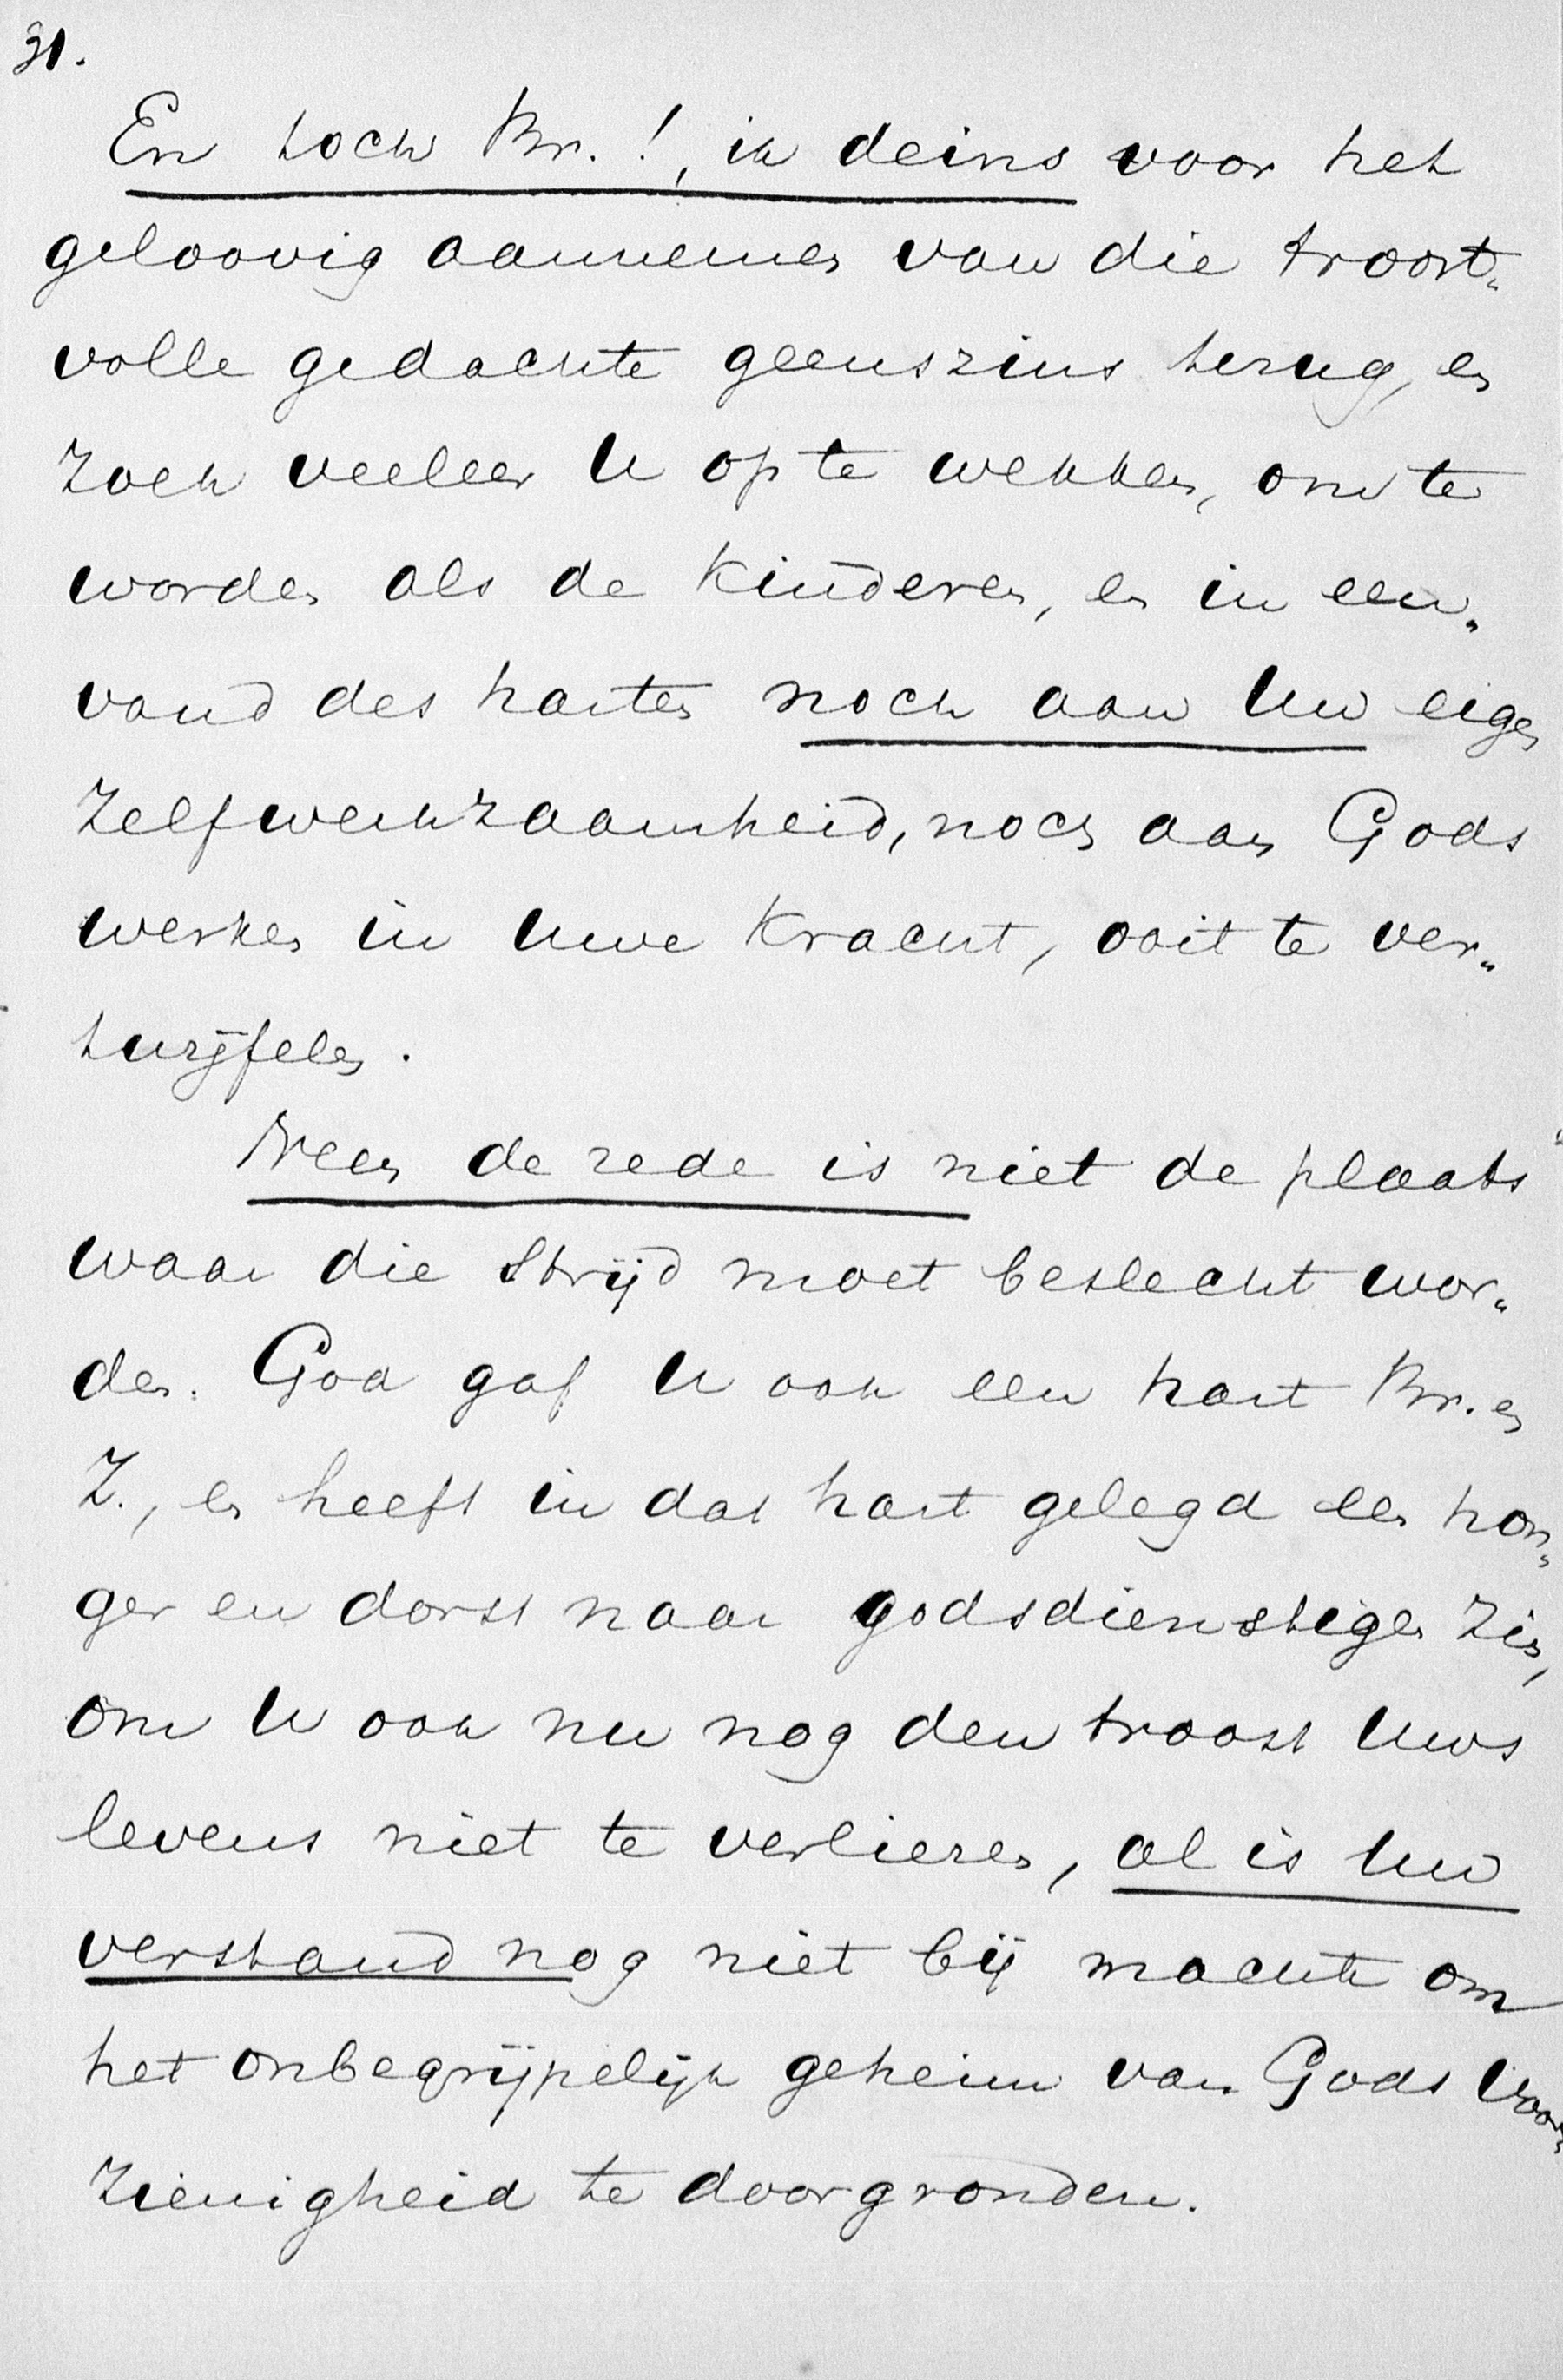 31.
En toch Br.!, ik deins voor het
geloovig aannemen van die troost-
volle gedachte geenszins terug, en
zoek veeleer U op te wekken, om te
worden als de kinderen, en in een-
voud des harten noch aan Uw eigen
zelfwerkzaamheid, noch aan Gods
werken in Uwe kracht, ooit te ver-
twijfelen.
Neen de rede is niet de plaats
waar die strijd moet beslecht wor-
den. God gaf U ook een hart Br. en
Z., en heeft in dat hart gelegd een hon-
ger en dorst naar godsdienstigen zin,
om U ook nu nog den troost Uws
levens niet te verliezen, al is Uw
verstand nog niet bij machte om
het onbegrijpelijk geheim van Gods Voor-
zienigheid te doorgronden.